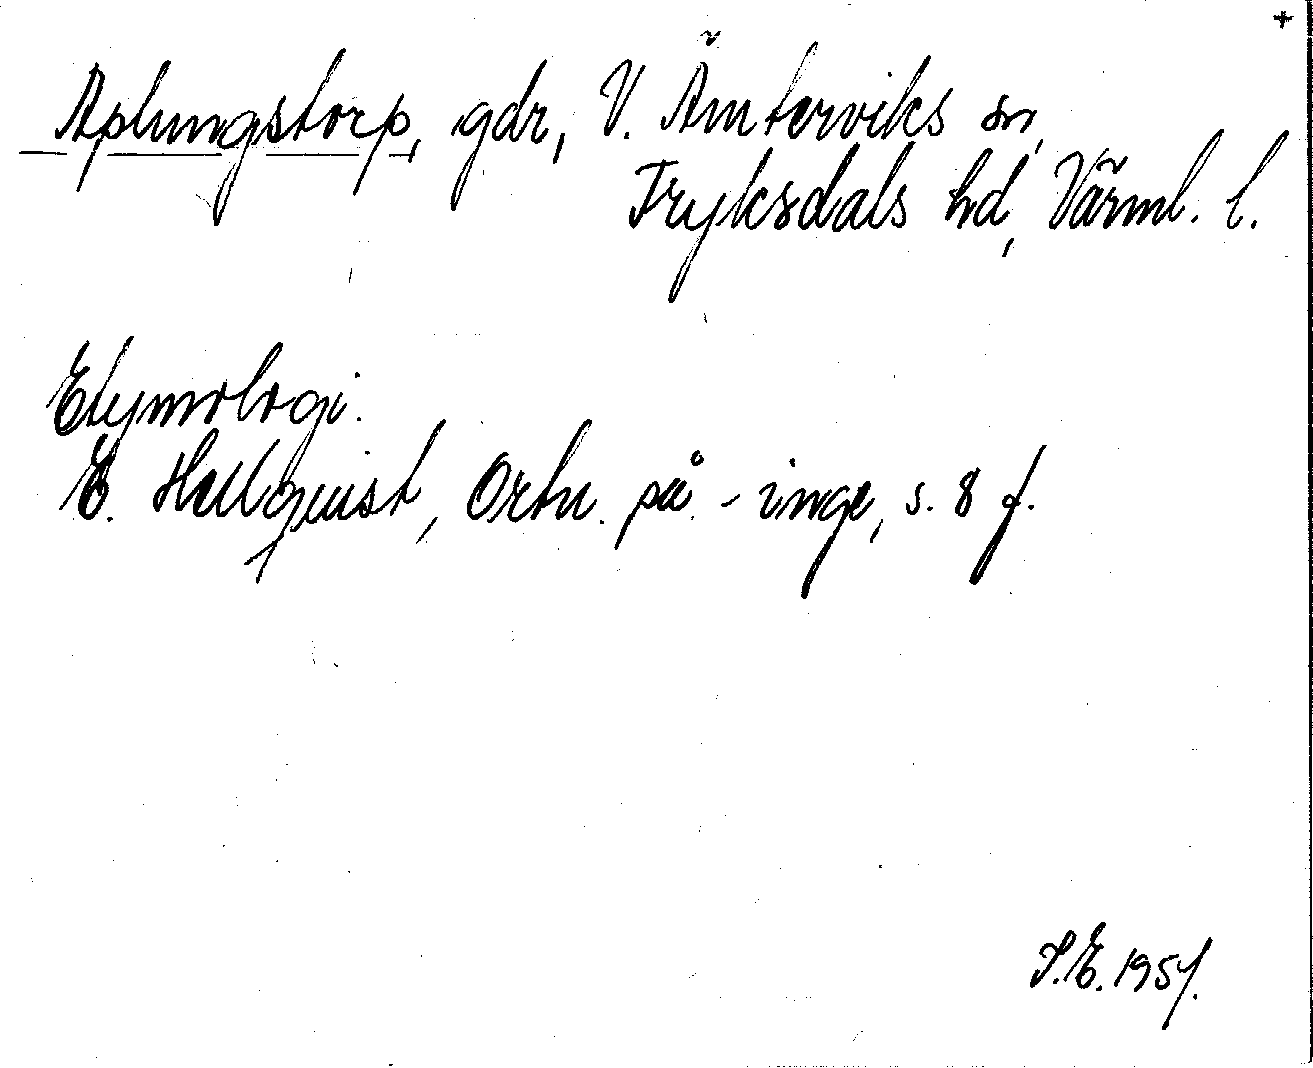 +
Aplungstorp, gdr, V. Ämterviks sn,
Fryksdals hd, Värml. l.
Etymologi.
E. Hellquist, Ortn. på -inge, s. 8 f.
S.E. 1957.